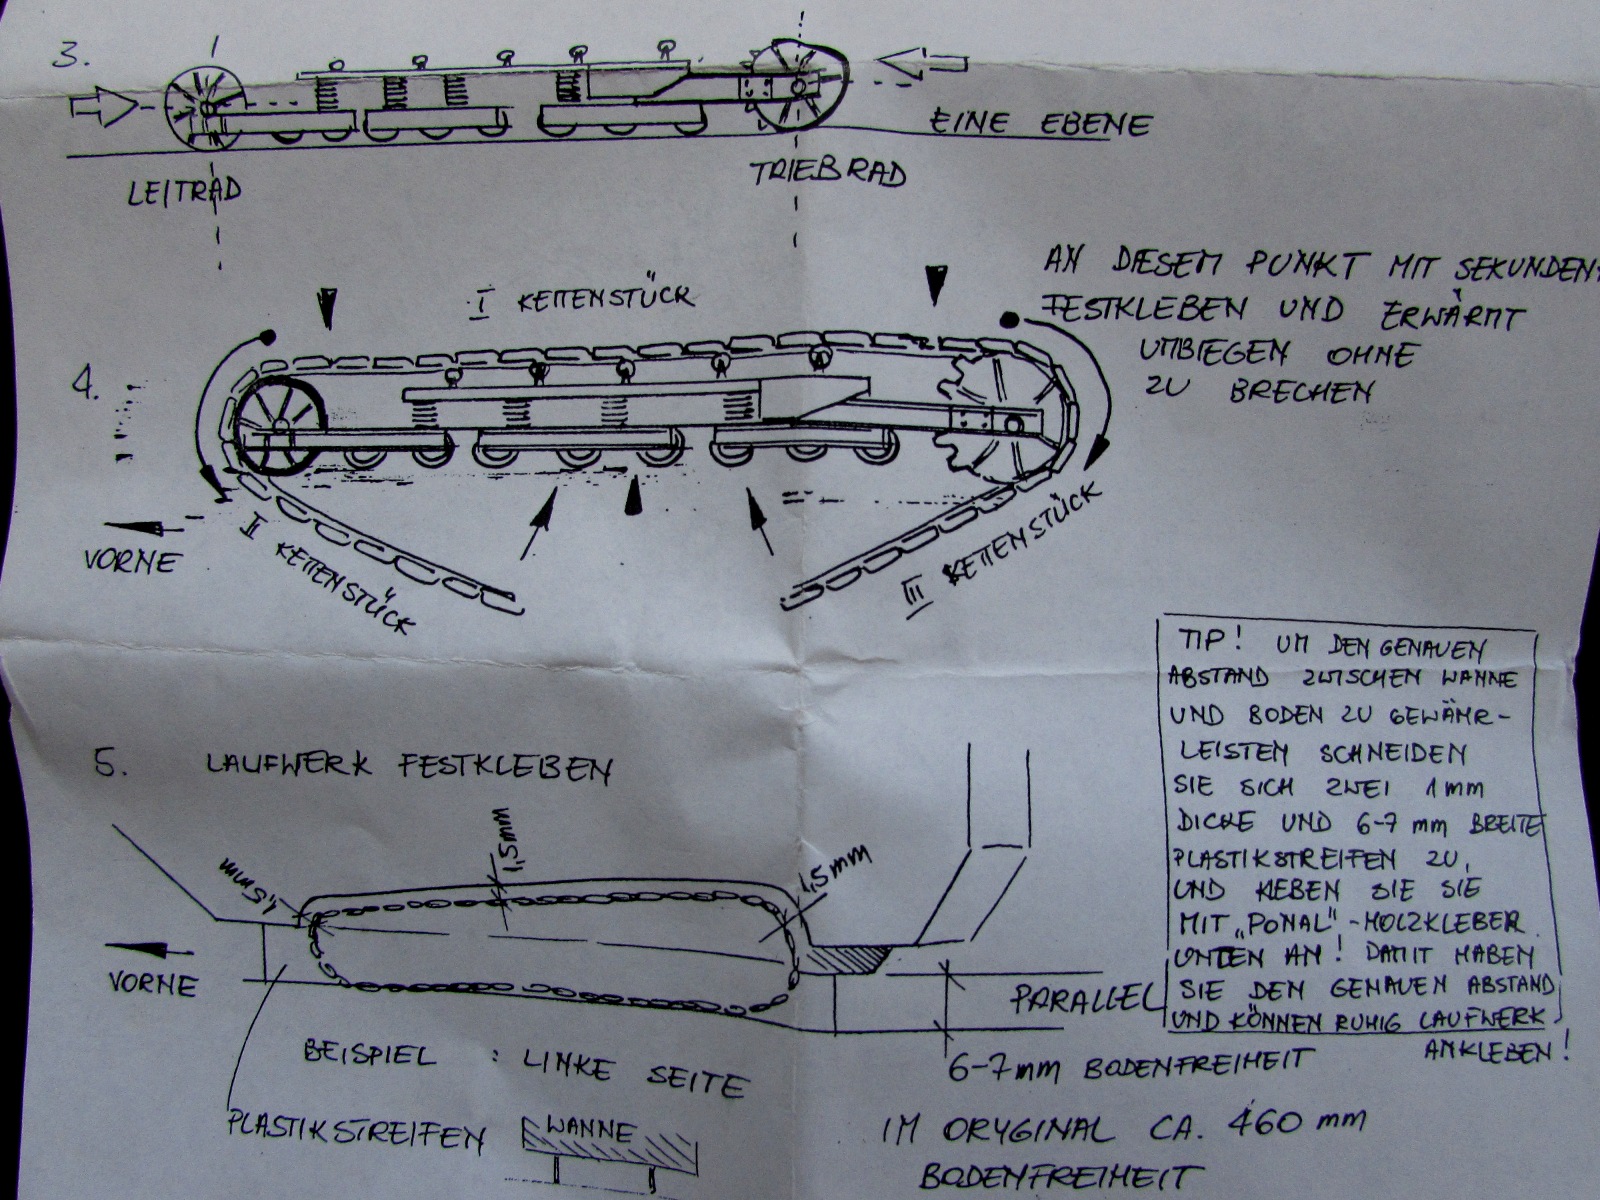 3.
EINE EBENE
LEITRAD
TRIEBRAD
AN DIESEM PUNKT MIT SEKUNDEN-
FESTKLEBEN UND ERWÄRMT
UMBIEGEN OHNE
ZU BRECHEN
I KETTENSTÜCK
4.
VORNE
II KETTENSTÜCK
III KETTENSTÜCK
TIP! UM DEN GENAUEN
ABSTAND ZWISCHEN WANNE
UND BODEN ZU GEWÄHR-
LEISTEN SCHNEIDEN
SIE SICH ZWEI 1mm
DICKE UND 6-7 mm BREITE
PLASTIKSTREIFEN ZU,
UND KLEBEN SIE SIE
MIT „PONAL"-HOLZKLEBER
UNTEN AN! DAMIT HABEN
SIE DEN GENAUEN ABSTAND
UND KÖNNEN RUHIG LAUFWERK
ANKLEBEN!
5. LAUFWERK FESTKLEBEN
1,5mm
1,5mm
1,5mm
VORNE
PARALLEL
BEISPIEL : LINKE SEITE
6-7mm BODENFREIHEIT
PLASTIKSTREIFEN
WANNE
IM ORYGINAL CA. 460 mm
BODENFREIHEIT